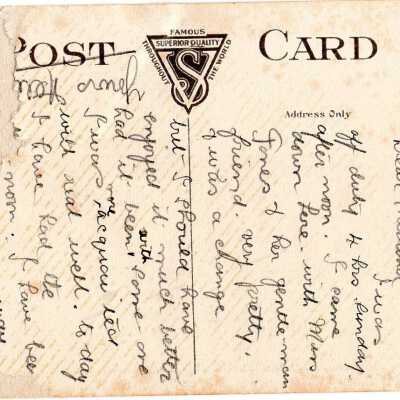 POST CARD
FAMOUS
SUPERIOR QUALITY
THROUGHOUT
THE WORLD
S
Address Only
Dear
I was
off duty 4 hrs Sunday
after noon. I came
down here with Miss
Jones & her gentleman
friend. very pretty.
it was a change
but I should have
enjoyed it much better
had it been with some one
I was more acquainted
with real well. to day
I have had the
noon. I have bee
yours